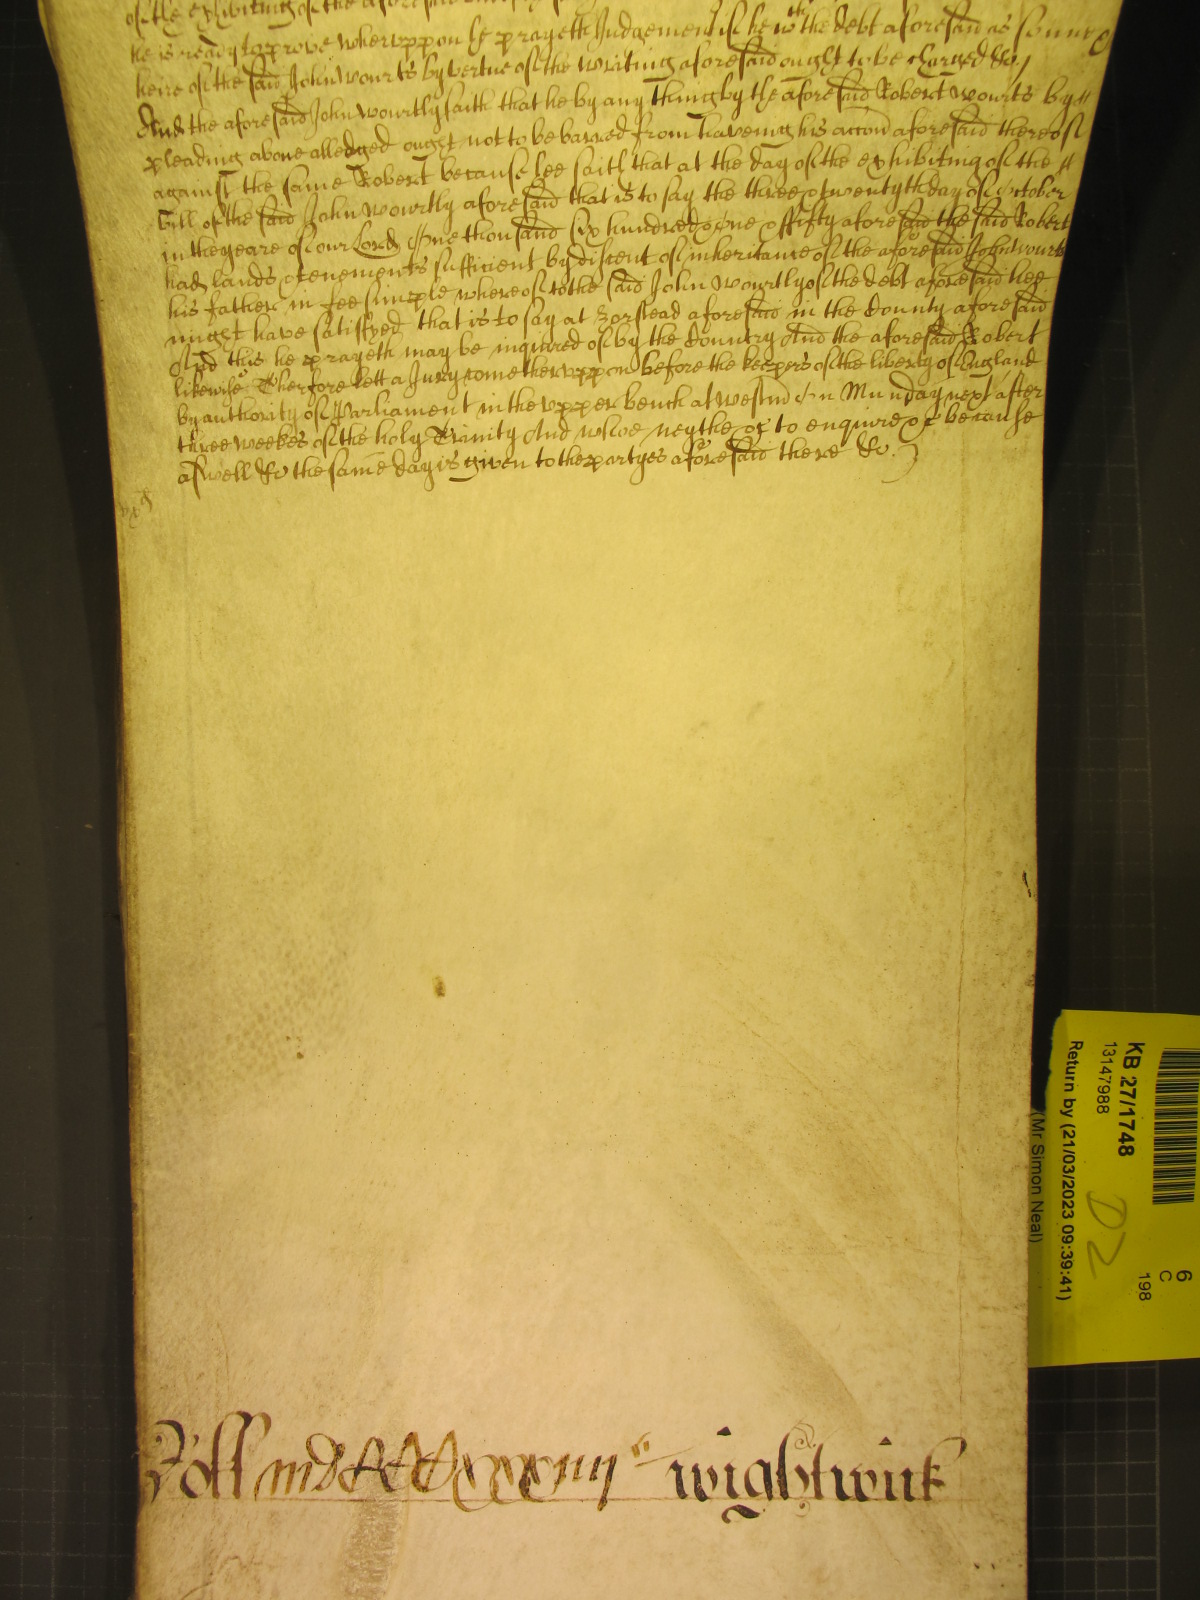 of the exhibiting of the aforesaid
he is ready to prove wheruppon he prayeth Judgement if he wth the debt aforesaid as sonne &
heire of the said John wourts by vertue of the writing aforesaid ought to be charged &c/
And the aforesaid John wourtly saith that he by any thing by the aforesaid Robert wourts by
pleading above alledged ought not to be barred from haveing his accon aforesaid thereof
against the same Robert because hee saith that at the day of the exhibiting of the
bill of the said John wourtly aforesaid that is to say the three & twentyth day of october
in the yeare of our Lord One thousand six hundred & one & fifty aforesaid the said Robert
had lands & tenements sufficient by discent of inheritance of the aforesaid John wourts
his father in fee simple whereof to the said John wourtly of the debt aforesaid hee
might have satisfyed that is to say at aforesaid in the County aforesaid
And this he prayeth may be inquired of by the Countrey And the aforesaid Robert
likewise Therfore lett a Jury come theruppon before the keepers of the liberty of England
by authority of Parliament in the upper bench at westm̄ on Munday next after
three weekes of the holy Trinity And whoe neythe &c to enquire &c because
aswell &c the same day is given to the partyes aforesaid there &c.
Roll
wightwick
KB 27/1748
13147988
Return by (21/03/2023 09:39:41)
(Mr Simon Neal)
D2
6
C
198